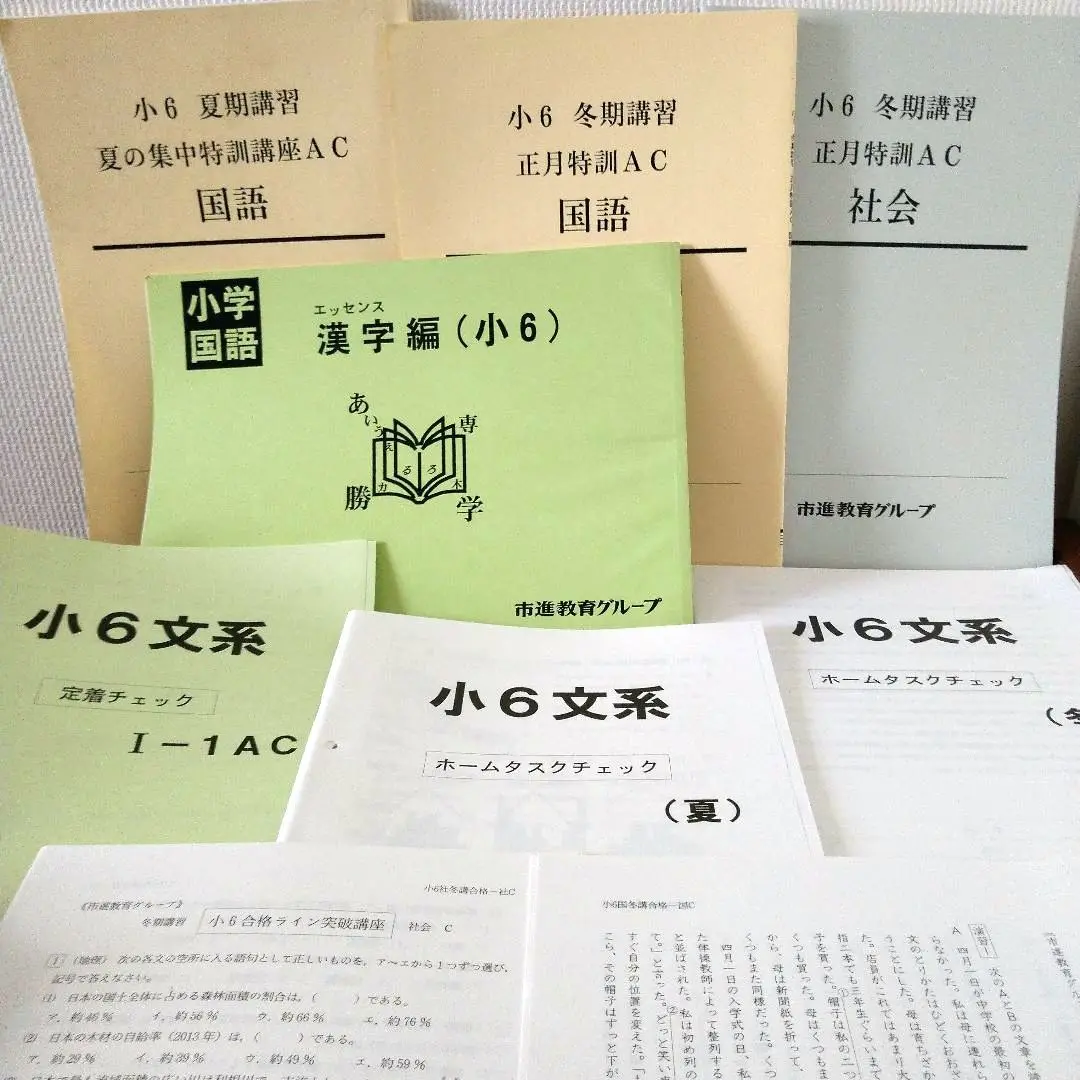 小6 夏期講習
夏の集中特訓講座AC
国語
小6 冬期講習
正月特訓AC
国語
小6 冬期講習
正月特訓AC
社会
市進教育グループ
小学
国語
エッセンス
漢字編(小6)
あいうえ
専
るろ
勝
カ
木
学
市進教育グループ
小6文系
定着チェック
I-1AC
小6文系
ホームタスクチェック
(夏)
小6文系
ホームタスクチェック
小6社冬講合格-社C
《市進教育グループ》
冬期講習 小6合格ライン突破講座 社会 C
1 (地理) 次の各文の空所に入る語句として正しいものを、ア~エから1つずつ選び、
記号で答えなさい。
(1) 日本の国土全体に占める森林面積の割合は、( )である。
ア.約46% イ.約56% ウ.約66% エ.約76%
(2) 日本の木材の自給率(2013年)は、( )である。
ア.約29% イ.約39% ウ.約49% エ.約59%
小6国冬講合格-国C
《市進教育グル
演習1 次のAとBの文章を読
A 四月一日が中学校の最初の
らなかった。私は母に連れら
文のとりかたはひどくおおざ
うことにした。母は育ちざか
た。店員がこれではあまり大
指二本でも三年生ぐらいまで
子を買った。①帽子は私の二つ
くつも買った。母はくつもま
くつもまた同様だった。くつ
から、母は新聞紙を折って、
四月一日の入学式の日、私
た体操教師によって整列する
と並ばされた。私は初め列の
て。」と言った。②どっと笑い声
すぐ自分の位置を変えた。「
こら、その帽子はずっと下が